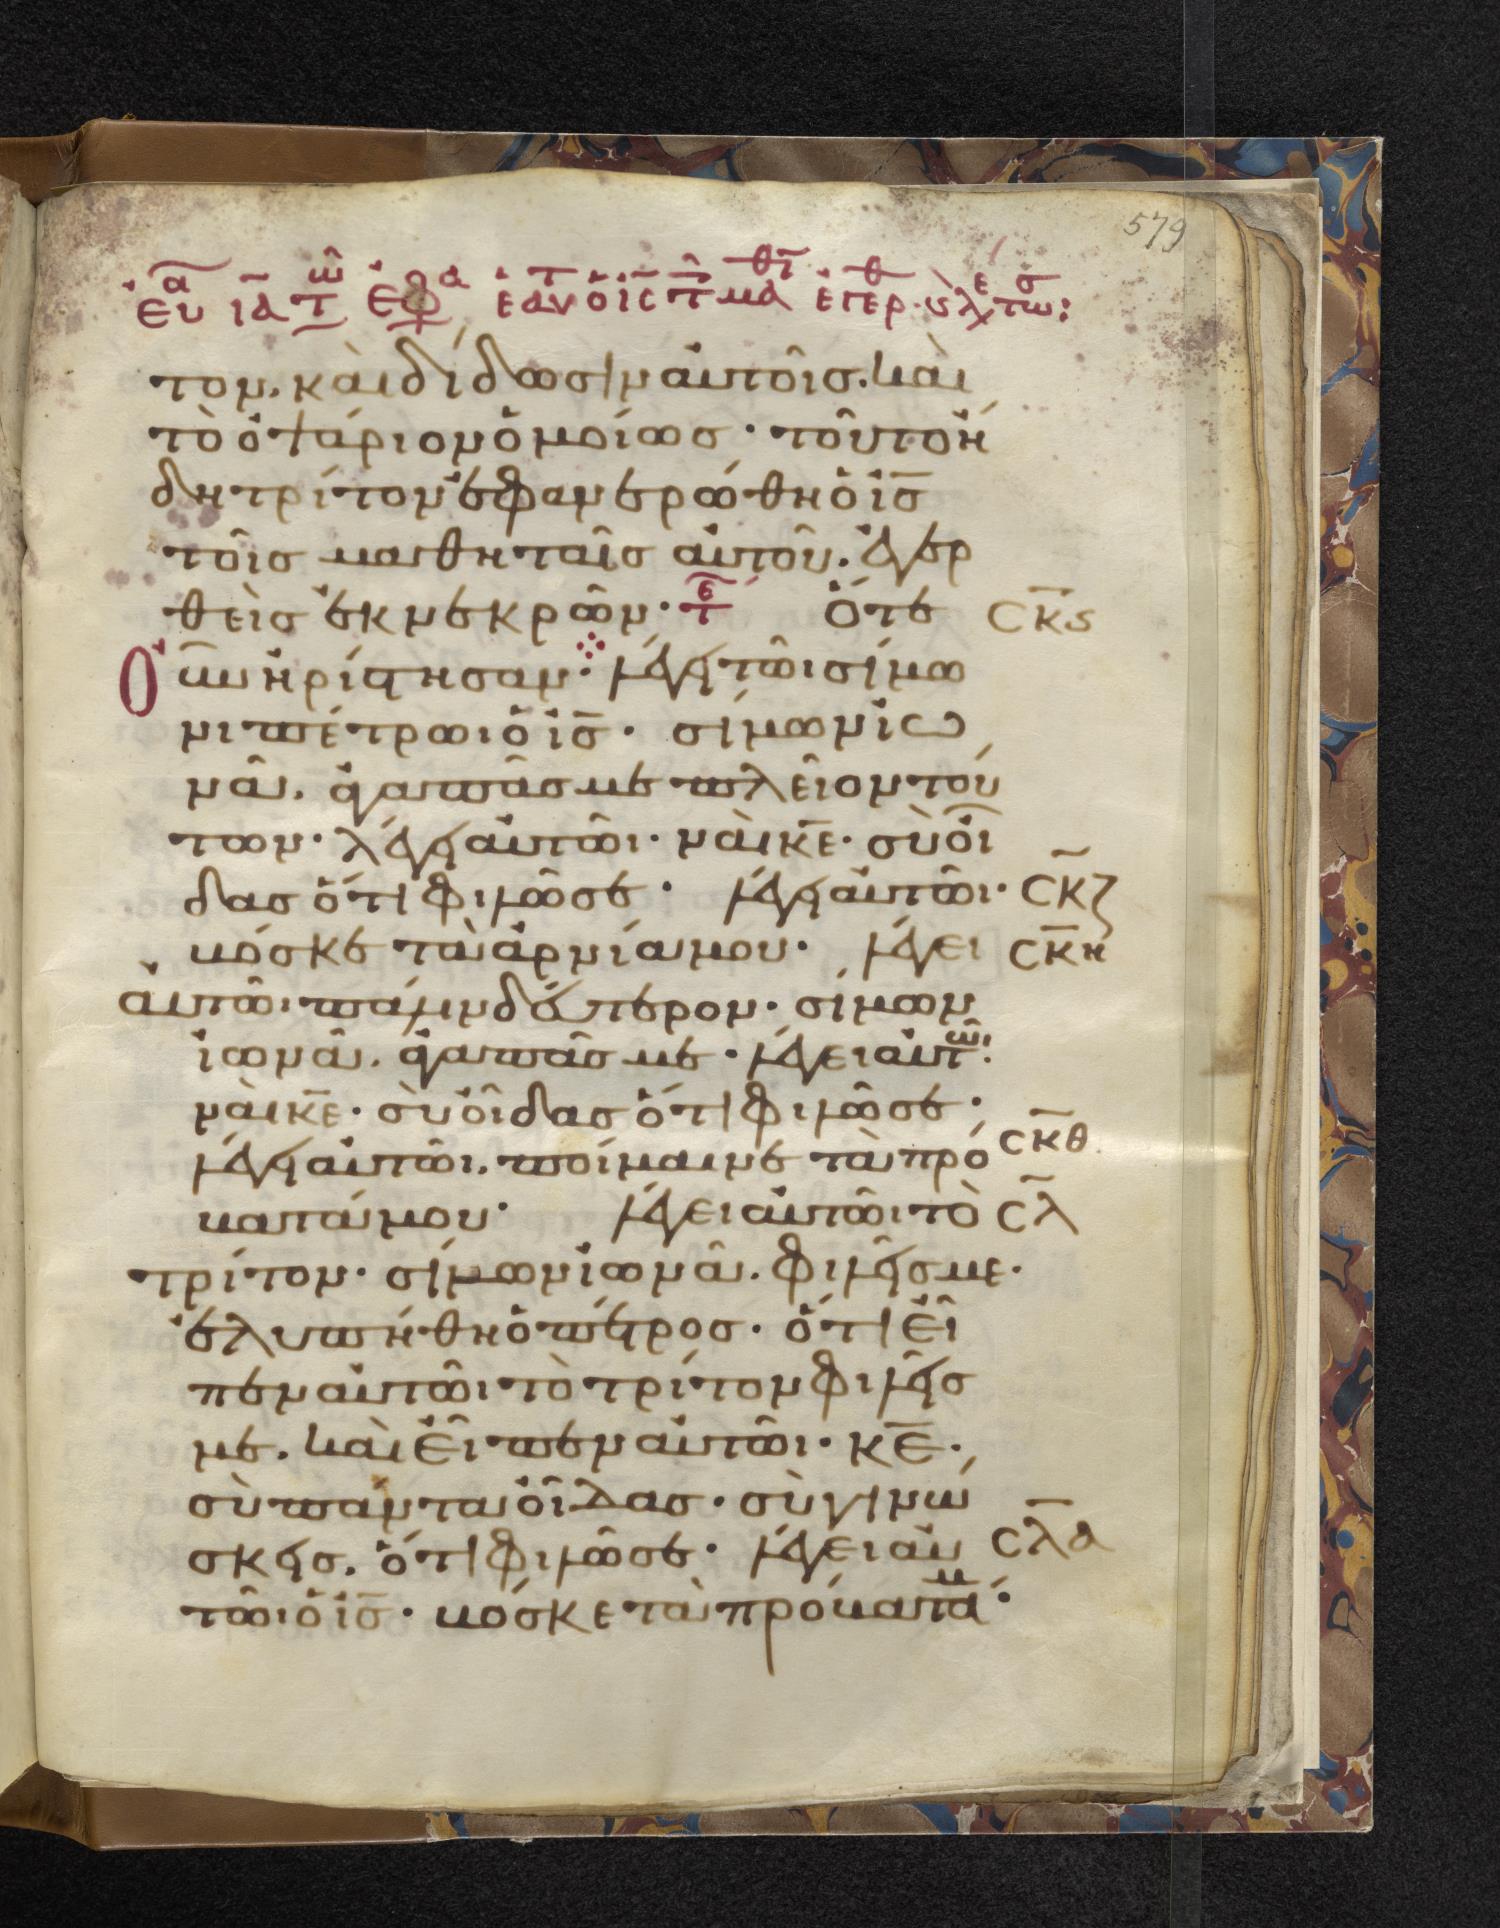 579
τον. καὶ δίδωσιν αὐτοῖσ. καὶ
τὸ ὀψάριον ὁμοίωσ · τοῦτο ἤ
δη τρίτον ἐφανερώθη ὁ ἰ̅σ̅
τοῖσ μαθηταῖσ αὐτοῦ. ἐγερ
θεὶσ ἐκ νεκρῶν · τε Ὅτε ϲ̅κ̅ϛ̅
οὖν ἠρίστησαν · λέγει τῶι σίμω
νι πέτρωι ὁ ἰ̅σ̅ · σίμων ἰω
νᾶ. ἀγαπᾶσ με πλεῖον τού
των · λέγει αὐτῶι · ναὶ κ̅ε̅ · σὺ οἶ
δασ ὅτι φιλῶ σε · λέγει αὐτῶι · ϲ̅κ̅ζ̅
βόσκε τὰ ἀρνία μου · λέγει ϲ̅κ̅η̅
αὐτῶι πάλιν δεύτερον · σίμων
ἰωνᾶ. ἀγαπᾶσ με · λέγει αὐτῶ:
ναὶ κ̅ε̅ · σὺ οἶδασ ὅτι φιλῶ σε ·
λέγει αὐτῶι. ποίμαινε τὰ πρό ϲ̅κ̅θ̅
βατά μου · λέγει αὐτῶι τὸ ϲ̅λ̅
τρίτον · σίμων ἰωνᾶ. φιλεῖσ με ·
ἐλυπήθη ὁ πέτροσ · ὅτι εἶ
πεν αὐτῶι τὸ τρίτον φιλεῖσ
με. καὶ εἶπεν αὐτῶι · κ̅ε̅ ·
σὺ πάντα οἶδασ · σὺ γινώ
σκεισ. ὅτι φιλῶ σε · λέγει αὐ ϲ̅λ̅α̅
τῶι ὁ ἰ̅σ̅ · βόσκε τὰ πρόβατά μ ·